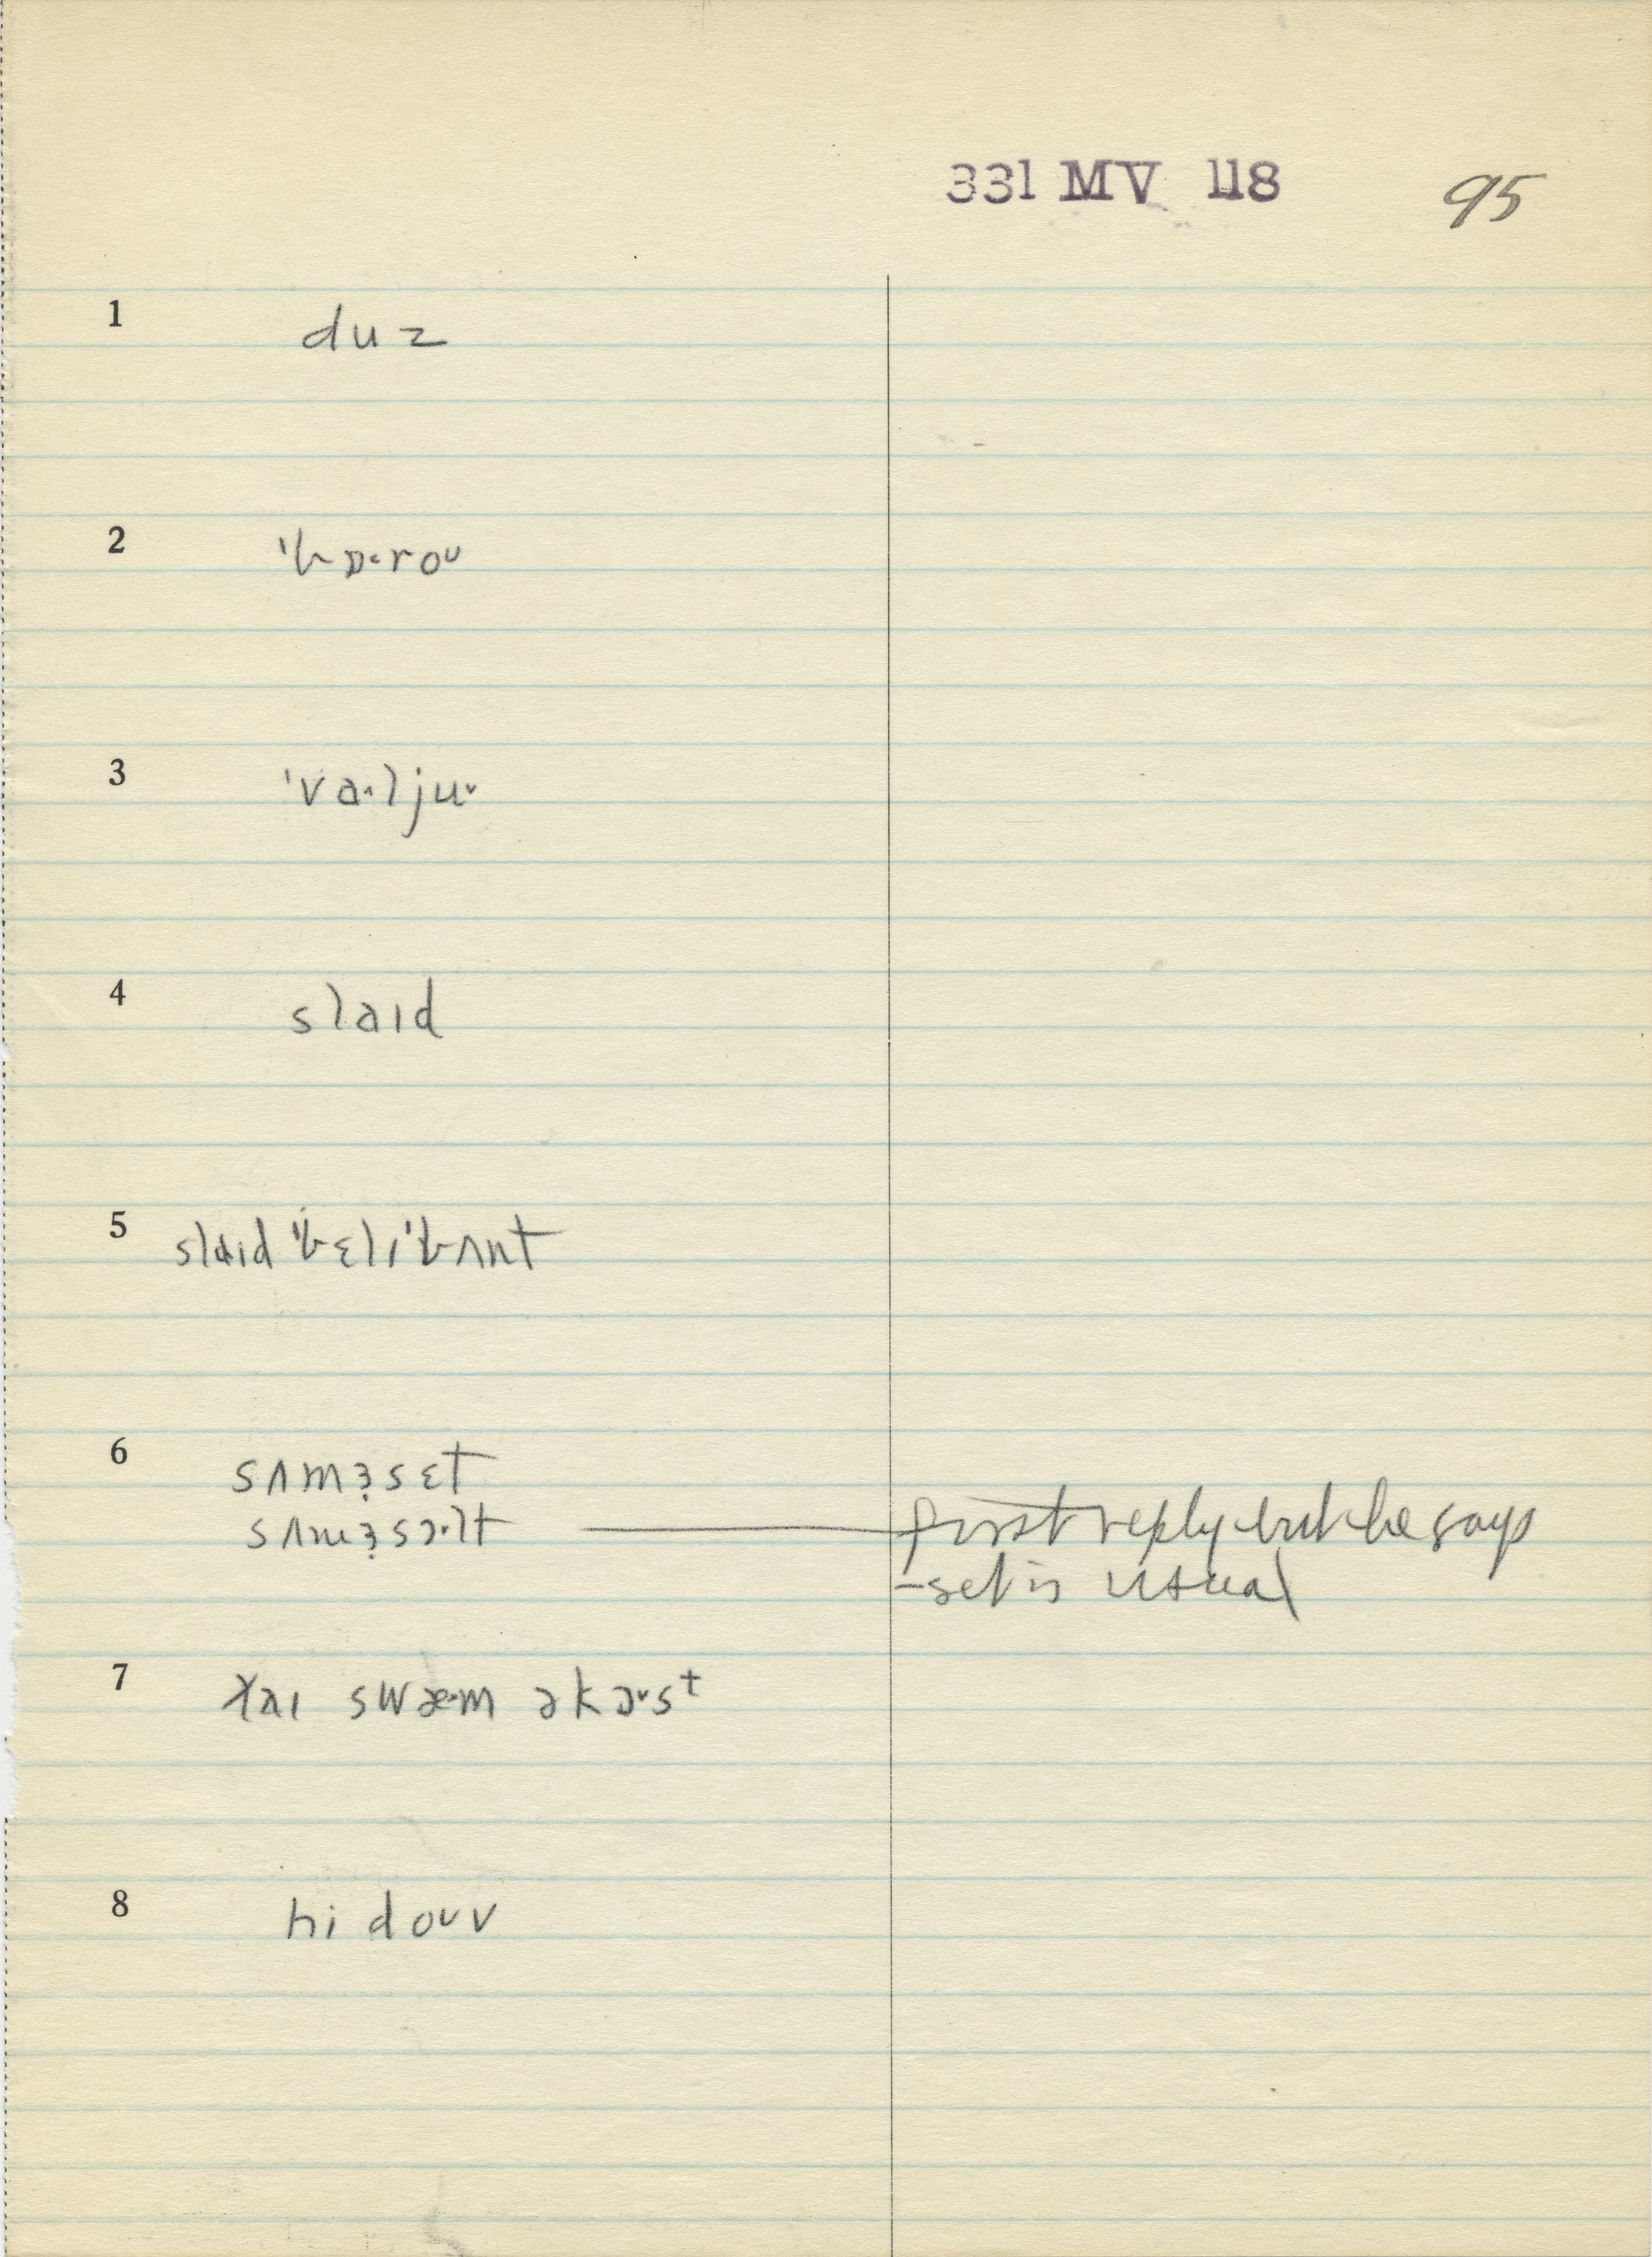 331 MV 118 95
1 duz
2 'bɒ˞roᴜ
3 'va˞ljuˇ
4 slaɪd
5 slaɪd 'bɛlɪ'bʌnt
6 sʌmɜ̣sɛt
sʌmɜ̣sɔ˞lt first reply but he says
-set is usual
7 swæ˞m əkɔˇst
8 hi doᴜv